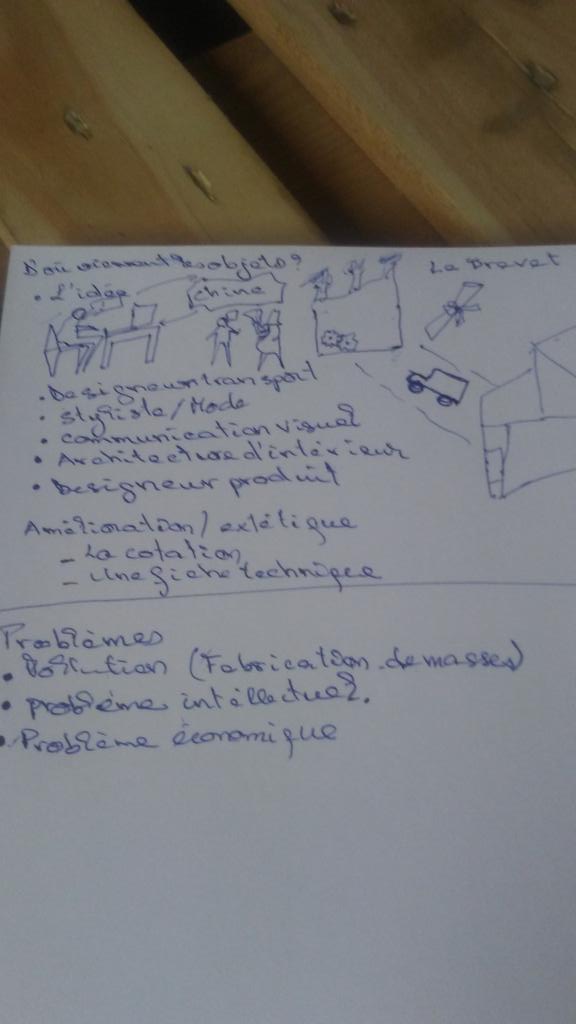 D'où viennent les objets?
Le Brevet
• L'idée
chine
• Designeur transport
• Styliste / Mode
• communication visuel
• Architecture d'intérieur
• Designeur produit
Amélioration / extétique
- La cotation
- Une fiche technique
Problèmes
• Pollution (Fabrication de masses)
• problème intéllectuel.
• Problème économique